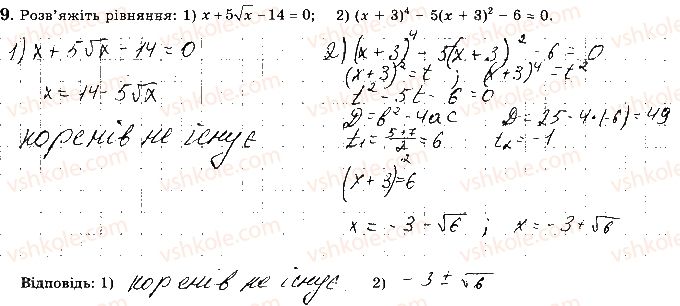 9. Розв'яжіть рівняння: 1) x + 5√x − 14 = 0; 2) (x + 3)⁴ − 5(x + 3)² − 6 = 0.
1) x + 5√x − 14 = 0
x = 14 − 5√x
коренів не існує
2) (x + 3)⁴ − 5(x + 3)² − 6 = 0
(x + 3)² = t ; (x + 3)⁴ = t²
t² − 5t − 6 = 0
D = b² − 4ac D = 25 − 4·(−6) = 49
t₁ = (5+7)/2 = 6 t₂ = −1
(x + 3)² = 6
x = −3 − √6 ; x = −3 + √6
Відповідь: 1) коренів не існує 2) −3 ± √6
vshkole.com